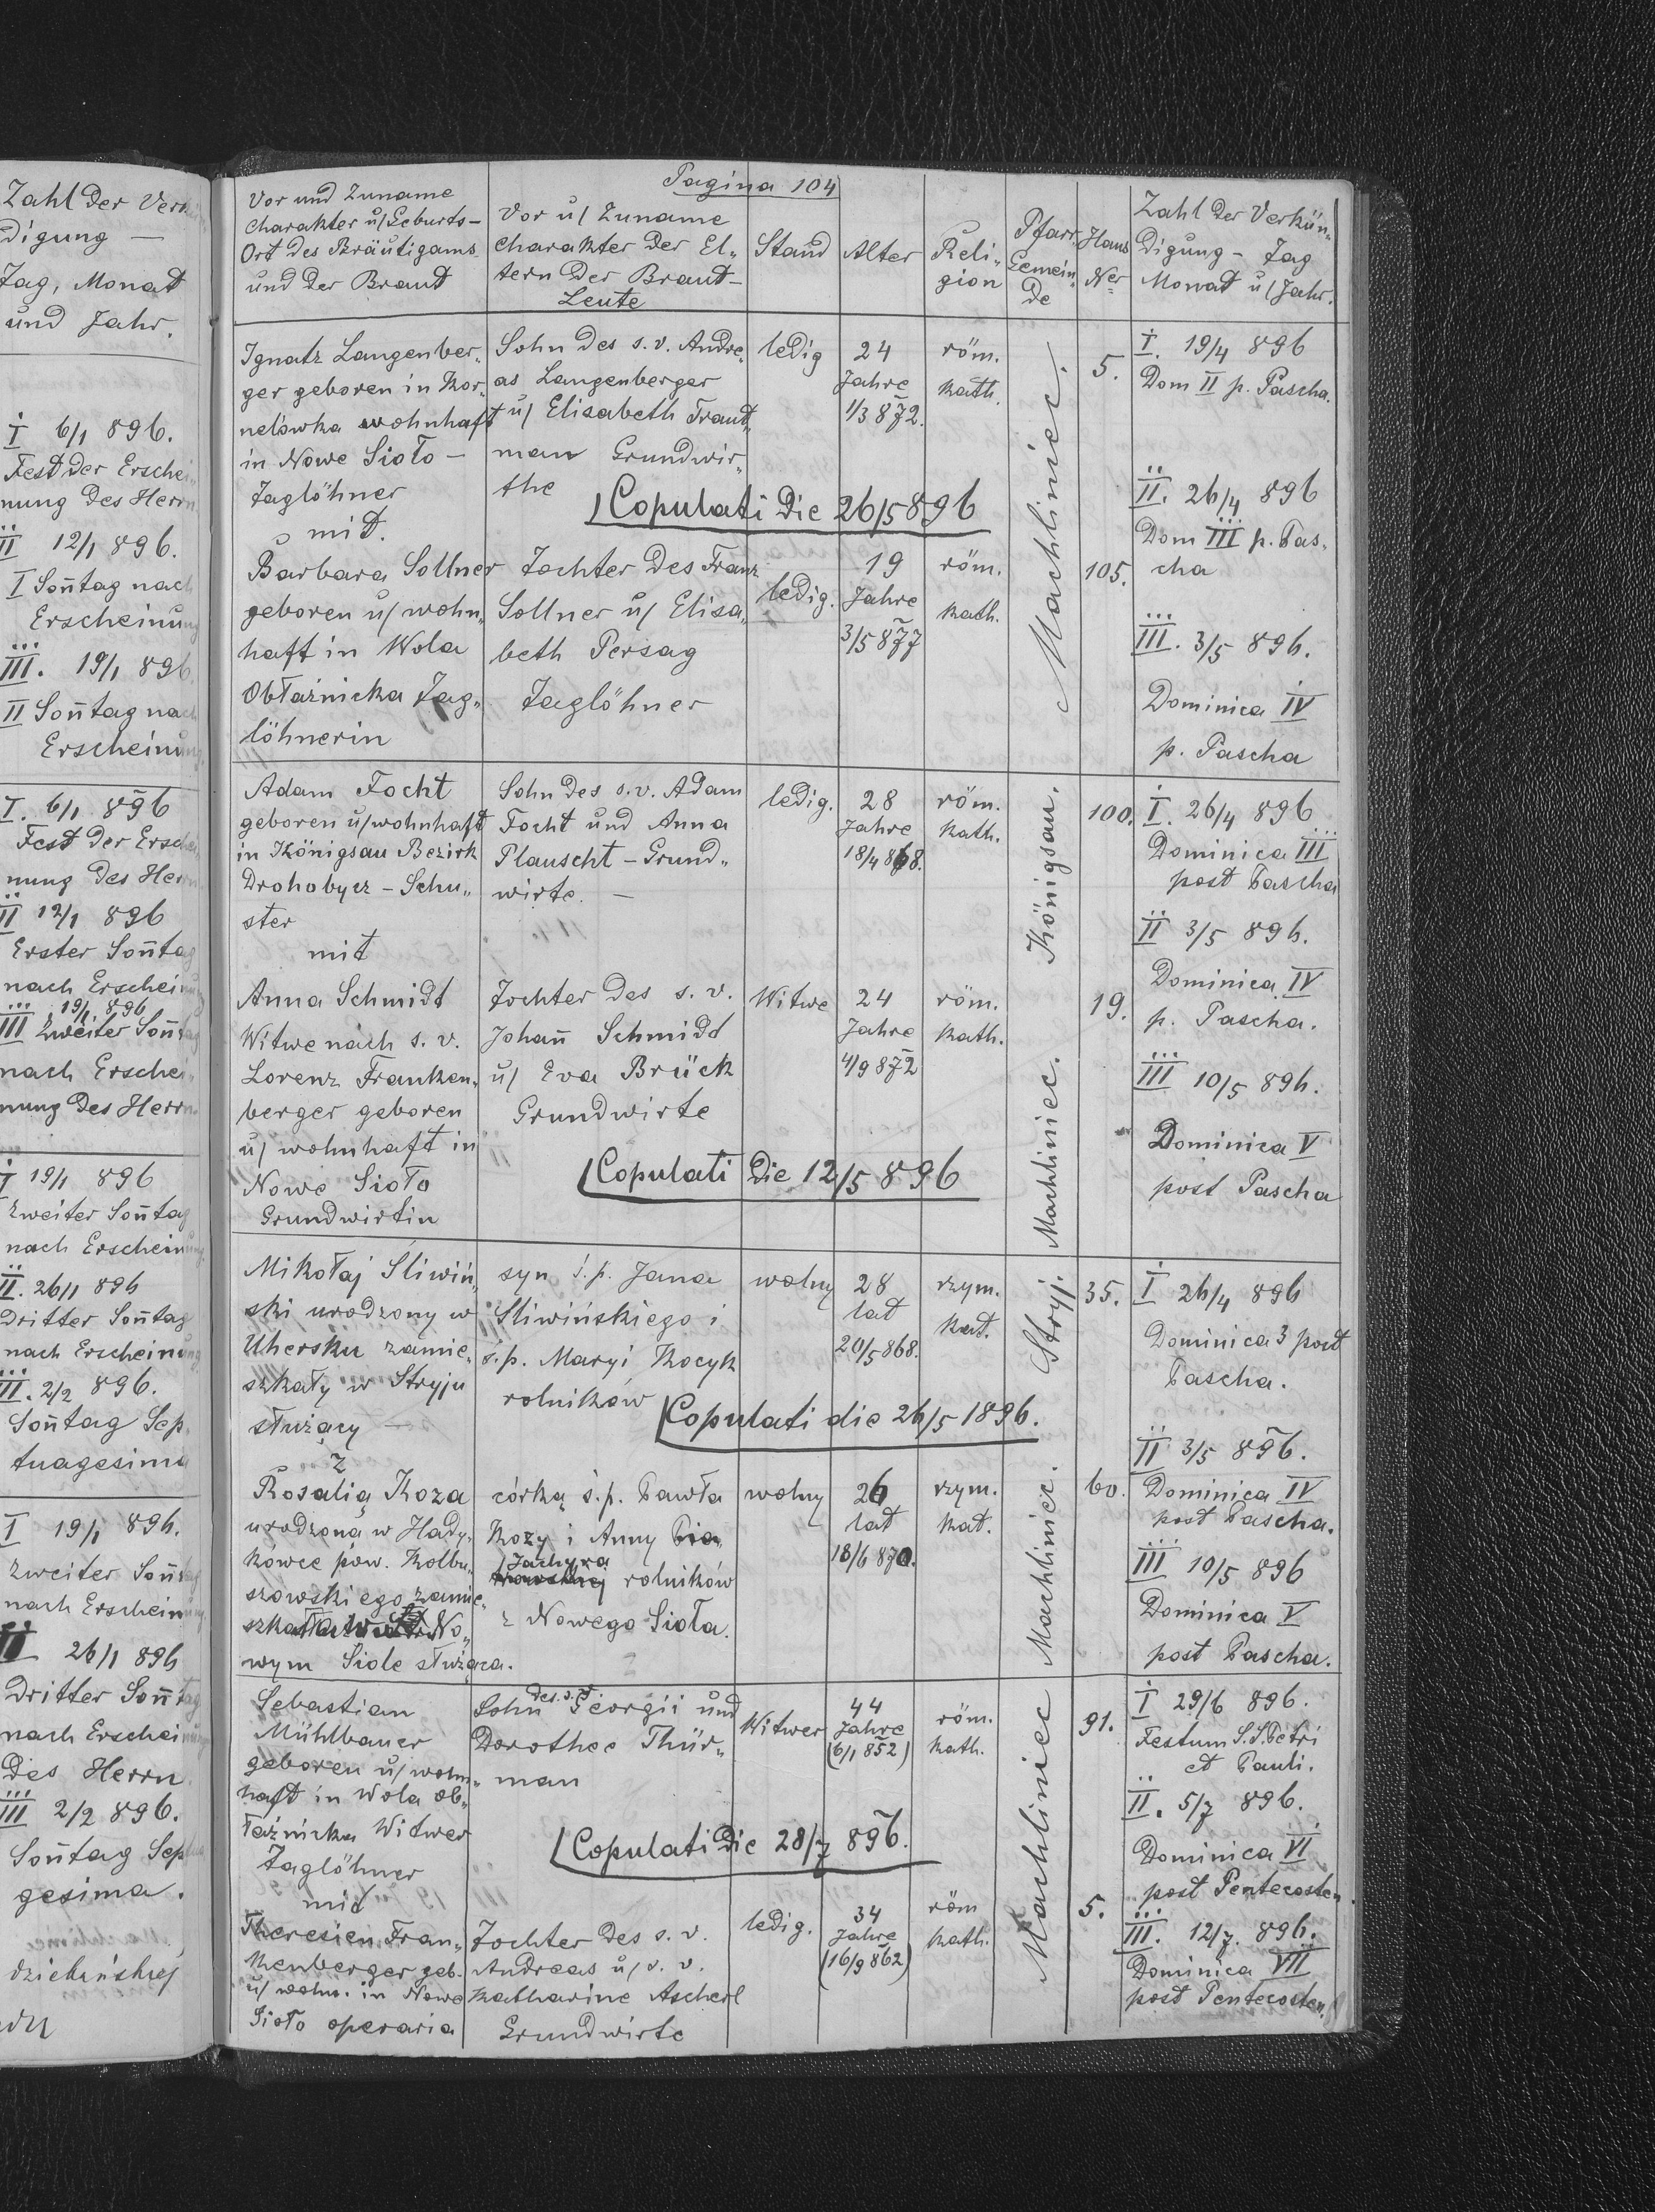 Zahl der Ver
digung —
Tag, Monat
und Jahr.
I 6/1 896.
Fest der Erschei
nung des Herrn
II 12/1 896.
I Son̄tag nach
Erscheinung
III. 19/1 896.
II Son̄tag nach
Erscheinung
I. 6/1 896
Fest der Erschei
nung des Herrn
II 12/1 896
Erster Son̄tag
nach Erscheinung
19/1 896
III Zweiter Son̄tag
nach Erschei
nung des Herrn.
I 19/1 896
Zweiter Son̄tag
nach Erscheinung
II. 26/1 896
Dritter Son̄tag
nach Erscheinung
III. 2/2 896.
Son̄tag Sep
tuagesima
I 19/1 896.
Zweiter Son̄tag
nach Erscheinung
II 26/1 896
Dritter Son̄tag
nach Erscheinung
des Herrn
III 2/2 896.
Son̄tag Septua
gesima.
Pagina 104
Vor und Zuname
Charakter u/ Geburts-
Ort des Bräutigams
und der Braut
Vor u/ Zuname
Charakter der El„
tern der Braut-
Leute
Stand
Alter
Reli„
gion
Pfarr.
Gemein„
de
Haus
Ner
Zahl der Verkün„
digung - Tag
Monat u/ Jahr.
Ignatz Langenber„
ger geboren in Kor„
nelówka wohnhaft
in Nowe Sioło —
Taglöhner
mit.
Sohn des s.v. Andre„
as Langenberger
u/ Elisabeth Traut„
man Grundwir„
the
ledig
24
Jahre
1/3 872.
röm.
kath.
Machliniec.
5.
I. 19/4 896
Dom II p. Pascha.
Copulati die 26/5 896
II. 26/4 896
Dom III p. Pas„
cha
Barbara Sollner
geboren u/ wohn„
haft in Wola
Obłaźnicka Tag„
löhnerin
Tochter des Franz
Sollner u/ Elisa„
beth Persag
Taglöhner
ledig.
19
Jahre
3/5 877
röm.
kath.
105.
III. 3/5 896.
Dominica IV
p. Pascha
Adam Focht
geboren u/ wohnhaft
in Königsau Bezirk
Drohobycz - Schu„
ster
mit
Sohn des s.v. Adam
Focht und Anna
Plauscht - Grund„
wirte. —
ledig.
28
Jahre
18/4 868.
röm.
kath.
Königsau.
100.
I. 26/4 896
Dominica III
post Pascha
II 3/5 896.
Dominica IV
p. Pascha.
Anna Schmidt
Witwe nach s. v.
Lorenz Franken„
berger geboren
u/ wohnhaft in
Nowe Sioło
Grundwirtin
Tochter des s. v.
Johan̄ Schmidt
u/ Eva Brück
Grundwirte
Witwe
24
Jahre
4/9 872
röm.
kath.
Machliniec.
19.
III 10/5 896.
Dominica V
post Pascha
Copulati die 12/5 896
Mikołaj Śliwiń„
ski urodzony w
Uhersku zamie„
szkały w Stryju
służący —
z
syn ś.p. Jana
Śliwińskiego i
ś.p. Maryi Kocyk
rolników
wolny
28
lat
20/5 868.
rzym.
kat.
Stryj.
35.
I 26/4 896
Dominica 3 post
Pascha.
Copulati die 26/5 1896.
II 3/5 896.
Dominica IV
post Pascha.
Rosalią Koza
urodzoną w Hady„
kówce pow. Kolbu„
szowskiego zamie„
szkała w No„
wym Siole służąca.
córką ś.p. Pawła
Kozy i Anny
Jachyra
rolników
z Nowego Sioła.
wolny
26
lat
18/6 870.
rzym.
kat.
Machliniec.
60.
III 10/5 896
Dominica V
post Pascha.
Sebastian
Mühlbauer
geboren u/ wohn„
haft in Wola ob„
łaźnicka Witwer
Taglöhner
mit
Sohn des s.v. Georgii und
Dorothee Thür„
man
Witwer
44
Jahre
(6/1 852)
röm.
kath.
Machliniec
91.
I 29/6 896.
Festum S.S. Petri
et Pauli.
II. 5/7 896.
Dominica VI
post Pentecosten.
Copulati die 28/7 896.
Theresien Fran„
kenberger geb.
u/ wohn. in Nowe
Sioło operaria
Tochter des s. v.
Andreas u/ s. v.
Katharine Ascherl
Grundwirte
ledig.
34
Jahre
(16/9 862)
röm
kath.
5.
III. 12/7. 896.
Dominica VII
post Pentecosten.